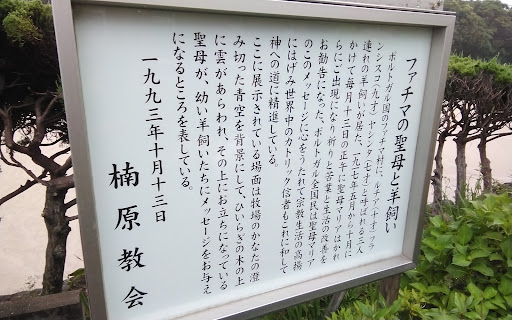 ファチマの聖母と羊飼い
ポルトガル国のファチマ村に、ルチア(十才)フラ
ンシスコ(九才)ヤシンタ(七才)と呼ばれる三人
連れの羊飼いが居た、一九一七年五月から十月に
かけて毎月十三日の正午に聖母マリアはかれ
らにご出現になり祈りと苦業と生活の改善を
お勧告になった、ポルトガル全国民は聖母マリア
のこのメッセージに心をうたれて宗教生活の高揚
にはげみ世界中のカトリック信者もこれに和して
神への道に精進している。
ここに展示されている場面は牧場のかなたの澄
み切った青空を背景にして、ひいらぎの木の上
に雲があらわれ、その上にお立ちになっている
聖母が、幼い羊飼いたちにメッセージをお与え
になるところを表している。
一九九三年十月十三日
楠原教会